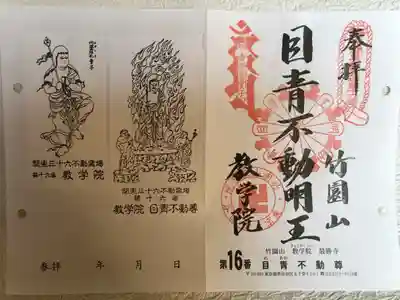 奉拝
目青不動明王
竹園山
教学院
竹園山 教学院 最勝寺
第16番 目青不動尊
関東三十六不動霊場
第十六番 教学院
関東三十六不動霊場
第十六番
教学院 目青不動尊
参拝 年 月 日